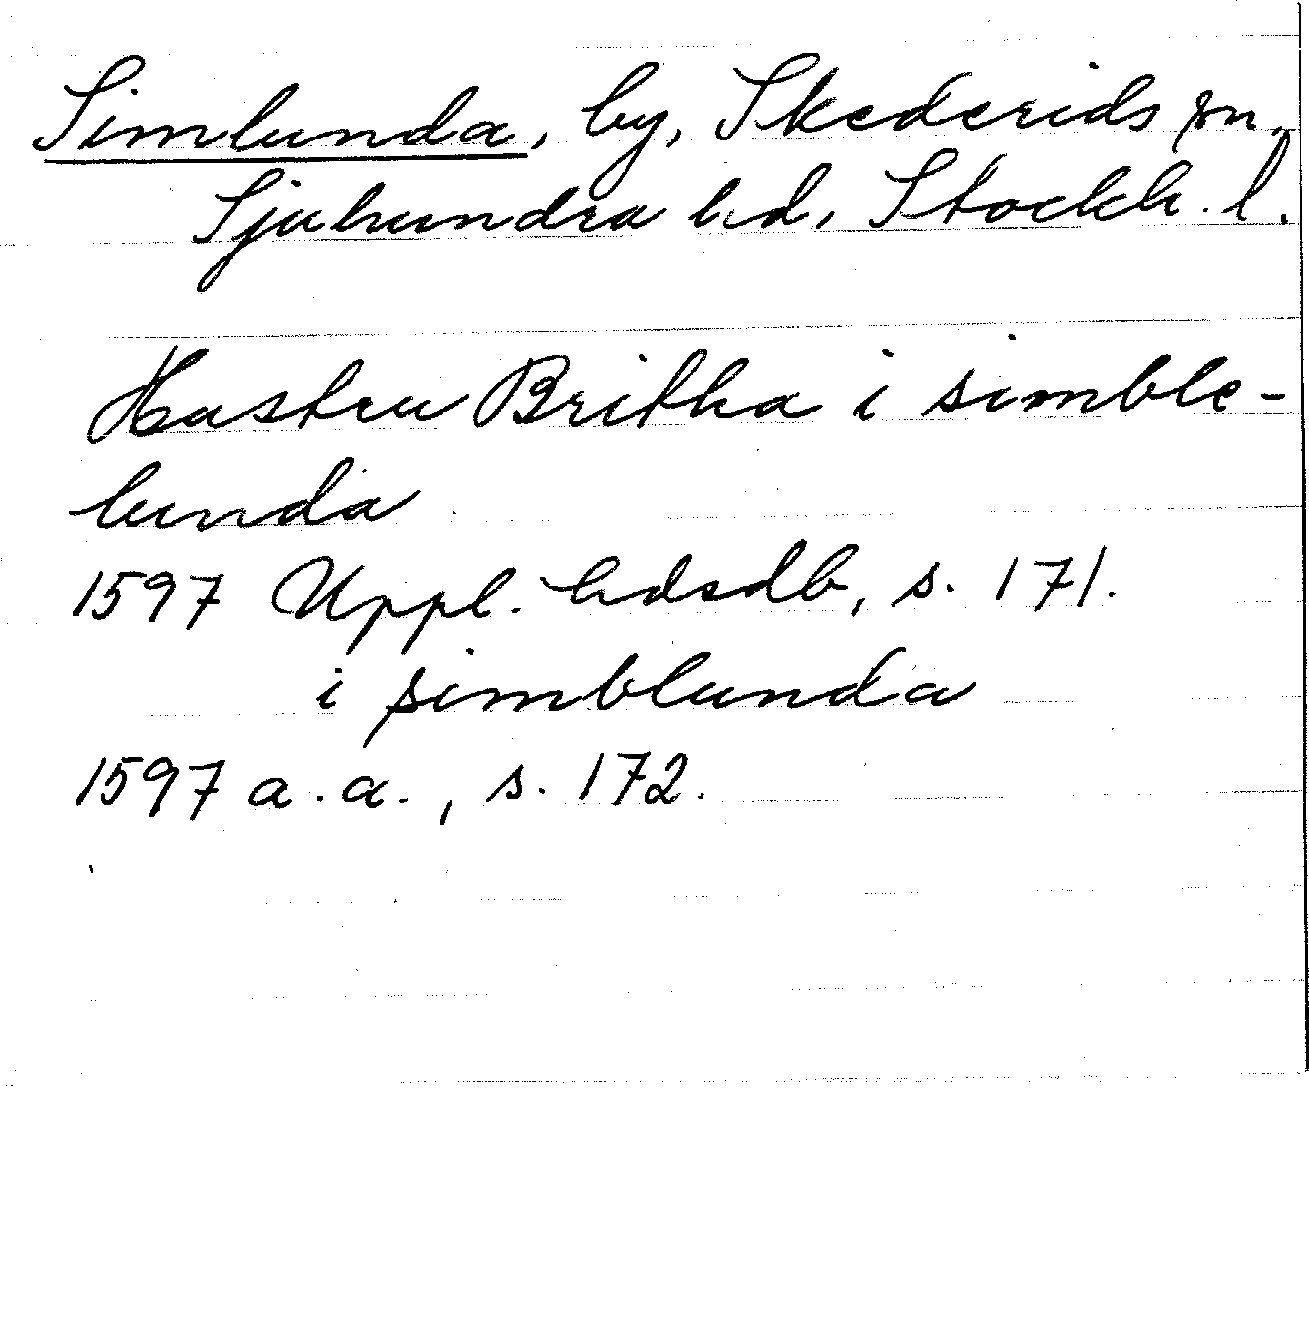 Simlunda, by, Skederids sn,
Sjuhundra hd, Stockh. l.
Hustru Britha i simble-
lunda
1597 Uppl. hdsdb, s. 171.
i simblunda
1597 a.a., s. 172.